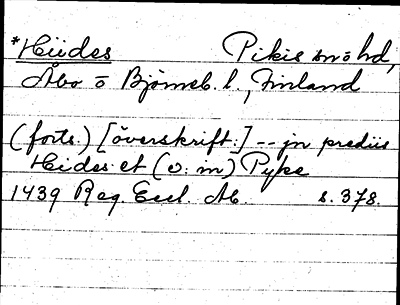 *Hiides Pikis sn o hd,
Åbo o Björneb. l., Finland
(forts.) [överskrift:] -- jn prediis
Heides et (o: in) Pyke
1439 Reg. Eccl. Ab. s. 378.